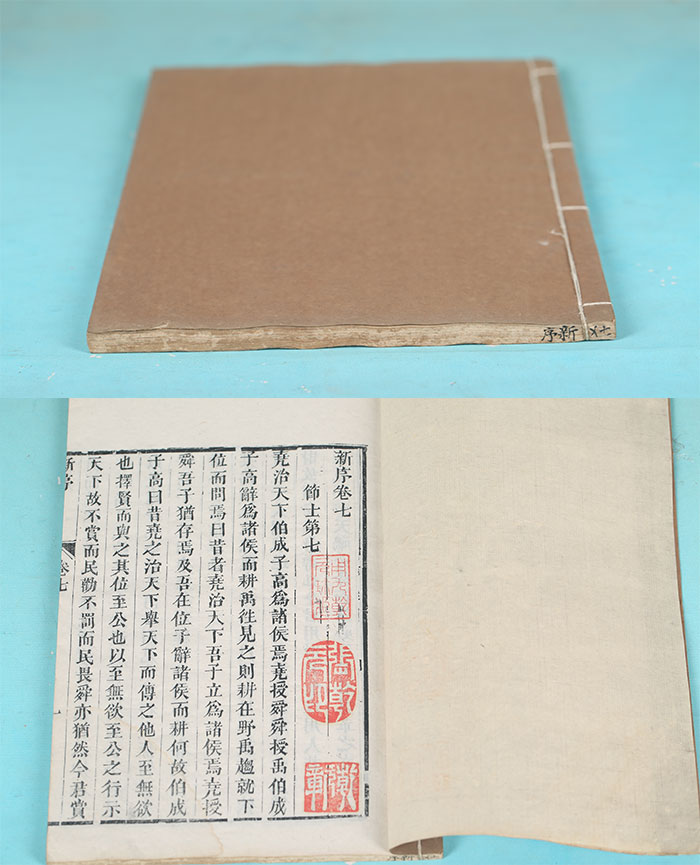 新序
新序卷七
節士第七
堯治天下伯成子高爲諸侯焉堯授舜舜授禹伯成
子高辭爲諸侯而耕禹徃見之則耕在野禹趨就下
位而問焉曰昔者堯治天下吾子立爲諸侯焉堯授
舜吾子猶存焉及吾在位子辭諸侯而耕何故伯成
子高曰昔堯之治天下舉天下而傳之他人至無欲
也擇賢而與之其位至公也以至無欲至公之行示
天下故不賞而民勸不罰而民畏舜亦猶然今君賞
新序
卷七
新序